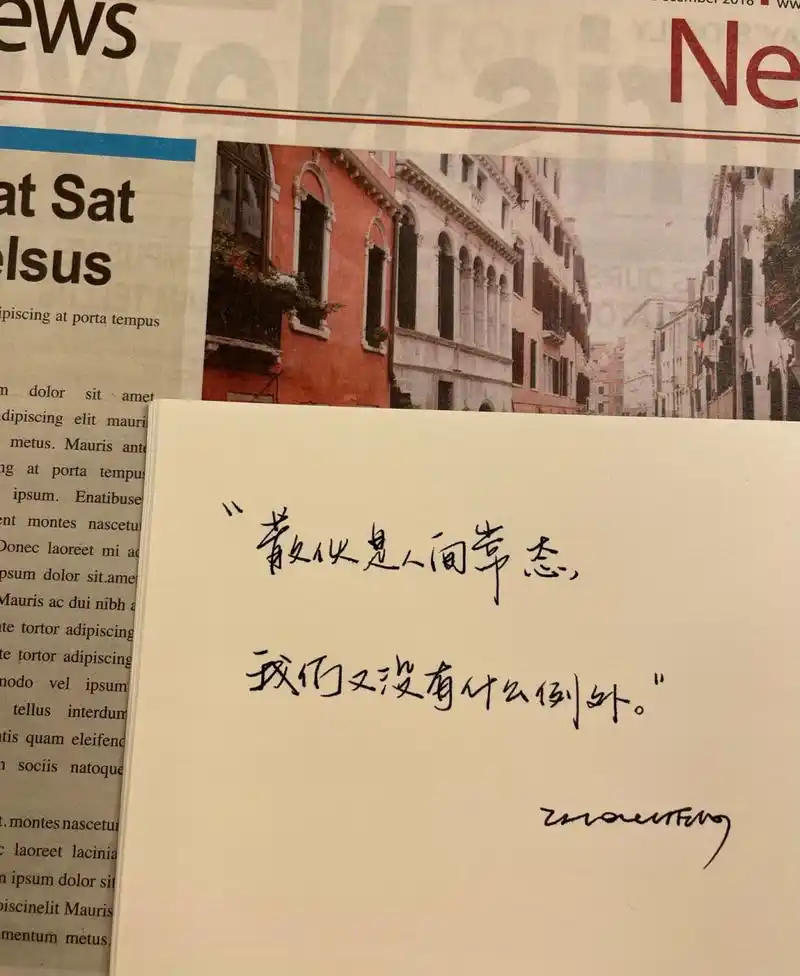 ews
December 2018 ■ ww
Ne
at Sat
elsus
ipiscing at porta tempus
m dolor sit amet
dipiscing elit mauri
metus. Mauris ante
ng at porta tempu
ipsum. Enatibuse
ent montes nascetu
Donec laoreet mi ac
psum dolor sit.ame
Mauris ac dui nibh a
te tortor adipiscing
te tortor adipiscing
modo vel ipsum
tellus interdum
tis quam eleifend
n sociis natoque
t. montes nascetu
c laoreet lacinia
n ipsum dolor sit
piscinelit Mauris
mentum metus.
“散伙是人间常态,
我们又没有什么例外。”